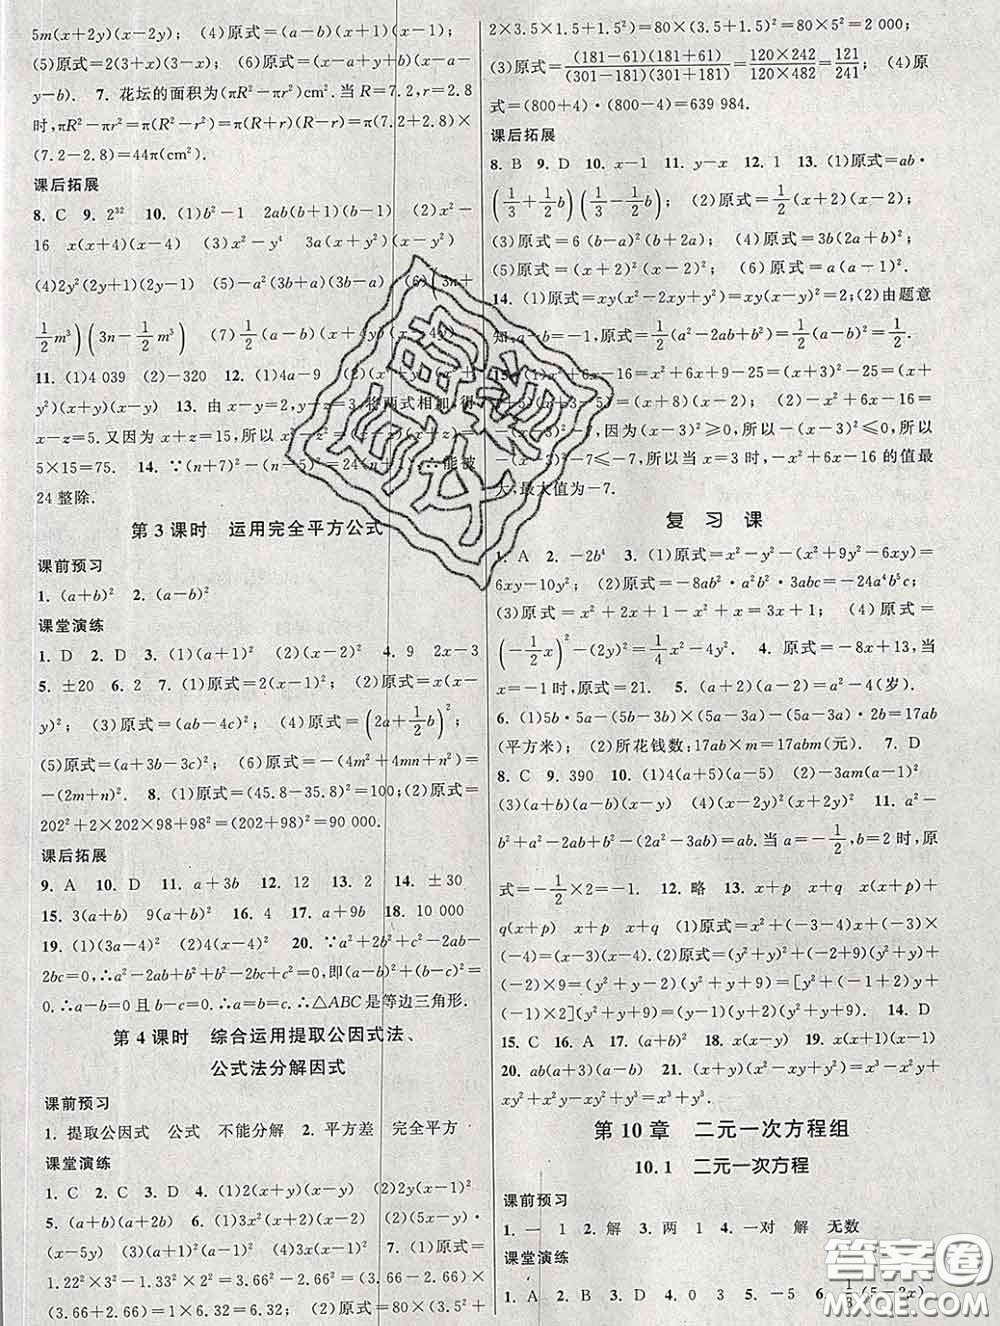 5m(x+2y)(x−2y); (4)原式=(b−a)(1+x)(1−x);
(5)原式=2(3+x)(3−x); (6)原式=(x−a+y+b)(x−a−
y−b). 7. 花坛的面积为(πR²−πr²)cm².当R=7.2,r=2.8
时,πR²−πr²=π(R²−r²)=π(R+r)(R−r)=π(7.2+2.8)×
(7.2−2.8)=44π(cm²).
课后拓展
8. C 9. 2³² 10. (1)b²−1 2ab(b+1)(b−1) (2)x²−
16 x(x+4)(x−4) (3)x²−y⁴ 3a(x+y²)(x−y²)
(4)2y²(2y+1)(2y−1) (5)−a²(3b+a)(3b−a) (6)(3n+
1/2m³)(3n−1/2m³) (7)1/2(a−b)(x+4y)(x−4y)
11. (1)4 039 (2)−320 12. (1)4a−9 (2)(x²+
y²)(x+y)(x−y) 13. 由x−y=2,y−z=3,将两式相加,得
x−z=5.又因为x+z=15,所以x²−z²=(x+z)(x−z)=
5×15=75. 14. ∵(n+7)²−(n−5)²=24(n+1),∴能被
24整除.
第3课时 运用完全平方公式
课前预习
1. (a+b)² 2. (a−b)²
课堂演练
1. D 2. D 3. (1)(a+1)² (2)(x−2)² 4. 9 2x−3
5. ±20 6. 2 7. (1)原式=2(x−1)²; (2)原式=x(x−
y)²; (3)原式=(ab−4c)²; (4)原式=(2a+1/2b)²;
(5)原式=(a+3b−3c)²; (6)原式=−(4m²+4mn+n²)=
−(2m+n)². 8. (1)原式=(45.8−35.8)²=100;(2)原式=
202²+2×202×98+98²=(202+98)²=90 000.
课后拓展
9. A 10. D 11. a+3b 12. 12 13. 2 14. ±30
15. 3(a+b) 9(a+b)² 16. 4 17. a+9b 18. 10 000
19. (1)(3a−4)² (2)4(x−y)² 20. ∵a²+2b²+c²−2ab−
2bc=0,∴a²−2ab+b²+b²−2bc+c²=0,即(a−b)²+(b−c)²=
0.∴a−b=0且b−c=0.∴a=b=c.∴△ABC是等边三角形.
第4课时 综合运用提取公因式法、
公式法分解因式
课前预习
1. 提取公因式 公式 不能分解 2. 平方差 完全平方
课堂演练
1. C 2. C 3. D 4. (1)2(x+y)(x−y) (2)2y(x−1)²
5. (a+b)(a+2b) 6. (1)3x²(2x+3)(2x−3) (2)(x+5y)
(x−5y) (3)(a+1)²(a−1)² (4)3(x−y)² 7. (1)原式=
1.22²×3²−1.33²×2²=3.66²−2.66²=(3.66−2.66)×
(3.66+2.66)=1×6.32=6.32; (2)原式=80×(3.5²+
2×3.5×1.5+1.5²)=80×(3.5+1.5)²=80×5²=2 000;
(3)原式=(181−61)(181+61)/(301−181)(301+181)=120×242/120×482=121/241; (4)原
式=(800+4)·(800−4)=639 984.
课后拓展
8. B 9. D 10. x−1 11. y−x 12. 1 13. (1)原式=ab·
(1/3+1/2b)(1/3−1/2b); (2)原式=1/2(x+2)(x−2);
(3)原式=6(b−a)²(b+2a); (4)原式=3b(2a−b)²;
(5)原式=(x+2)²(x−2)²; (6)原式=a(a−1)².
14. (1)原式=xy(x²−2xy+y²)=xy(x−y)²=2;(2)由题意
知,a−b=−1,原式=1/2(a²−2ab+b²)=1/2(a−b)²=1/2.
15. (1)x²+6x−16=x²+6x+9−25=(x+3)²−25=(x+3+
5)(x+3−5)=(x+8)(x−2); (2)−x²+6x−16=
−(x−3)²−7,因为(x−3)²≥0,所以−(x−3)²≤0.所以
−(x−3)²−7≤−7,所以当x=3时,−x²+6x−16的值最
大,最大值为−7.
复习课
1. A 2. −2b⁴ 3. (1)原式=x²−y²−(x²+9y²−6xy)=
6xy−10y²; (2)原式=−8ab²·a²b·3abc=−24a⁴b⁵c;
(3)原式=x²+2x+1−x²+x=3x+1; (4)原式=
(−1/2x)²−(2y)²=1/4x²−4y²; 4. 原式=−8x+13,当
x=−1时,原式=21. 5. (a+2)(a−2)=a²−4(岁).
6. (1)5b·5a−(5b−3b)×(5a−3a)−(5a−3a)·2b=17ab
(平方米); (2)所花钱数;17ab×m=17abm(元). 7. D
8. C 9. 390 10. (1)4(5+2a)(5−2a) (2)−3am(a−1)²
(3)(a+b)(a−b)(x−y) (4)(x+y)²(x−y)² 11. a²−
b²+a²−2ab+b²−(2a²−3ab)=ab. 当a=−1/2,b=2时,原
式=−1/2×2=−1. 12. 略 13. x+p x+q x(x+p)+
q(x+p) x+p x+q (1)原式=x²+(−3−4)x+(−3)×
(−4)=(x−3)(x−4); (2)原式=(y²+y)²+(−2+9)(y²+y)+
(−2)×9=(y²+y−2)(y²+y+9)=[y²+(−1+2)y+
(−1)×2](y²+y+9)=(y−1)(y+2)(y²+y+9). 14. D
15. C 16. A 17. (a+b)² 18. x(x−y) 19. x(x−1)
20. ab(a+3)(a−3) 21. (x+y)(x²−xy+y²)=x³−x²y+
xy²+x²y−xy²+y³=x³+y³.
第10章 二元一次方程组
10.1 二元一次方程
课前预习
1. 一 1 2. 解 3. 两 1 4. 一对 解 无数
课堂演练
1. A 2. D 3. D 4. 0 3 5. −5 6. 1/8(5−2x)
答案圈
MXQE.COM